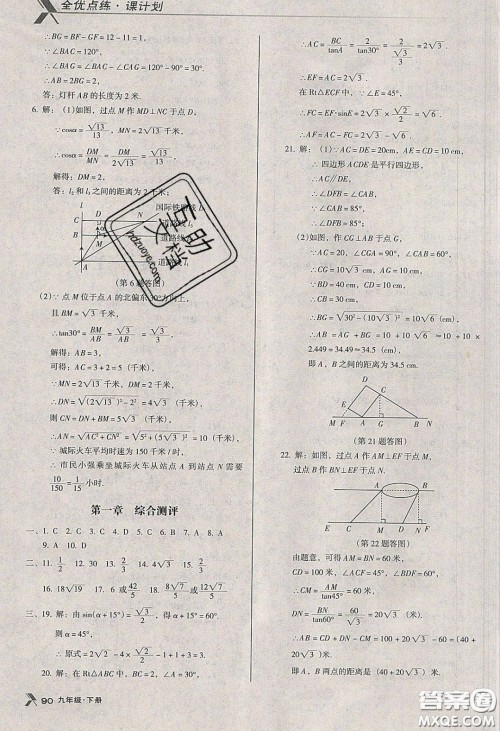 全优点练·课计划
∴BG=BF-GF=12-11=1.
∵∠BAC=120°,
∴∠BAG=∠BAC-∠CAG=120°-90°=30°.
∴AB=2BG=2.
答:灯杆 AB 的长度为 2 米.
6. 解:(1)如图,过点 M 作 MD⊥NC 于点 D,
∵cosα=√13/13,MN=2√13 千米,
∴cosα=DM/MN=DM/2√13=√13/13.
解得:DM=2.
答:l₂ 和 l₃ 之间的距离为 2 千米.
国际铁路线 l₁
(第 6 题答图)
(2)∵点 M 位于点 A 的北偏东 30°方向上,
且 BM=√3 千米,
∴tan30°=BM/AB=√3/AB=√3/3.
解得:AB=3,
可得:AC=3+2=5(千米),
∵MN=2√13 千米,
∴DN=√((2√13)²-2²)=4√3(千米),
则 CN=DN+BM=5√3(千米),
∴AN=√(AC²+CN²)=√(5²+(5√3)²)=10(千米),
∵城际火车平均时速为 150 千米/时,
∴市民小强乘坐城际火车从站点 A 到站点 N 需要
10/150=1/15 小时.
第一章 综合测评
一、1. C 2. C 3. D 4. C 5. D 6. B 7. A 8. A
9. A 10. D
二、11. 1/2 12. 30 13. 2/3 14. 4√3 15. 2/3
16. 18√19 17. 6 或 42/5 18. 8√7/5 或 12√7/5
三、19. 解:由 sin(α+15°)=√3/2,得 α+15°=60°.
则 α=45°,
∴原式=2√2-4×√2/2-1+1+3=3.
20. 解:在 Rt△ABC 中,BC=2,∠A=30°,
∴AC=BC/tanA=2/tan30°=2/(√3/3)=2√3.
∴EF=AC=2√3.
∵在 Rt△ECF 中,∵∠E=45°,
∴FC=EF·sinE=2√3×√2/2=√6.
∴AF=AC-FC=2√3-√6.
21. 解:(1)∵AC=DE=20cm,AE=CD=10cm,
∴四边形 ACDE 是平行四边形.
∴AC∥DE,
∴∠DFB=∠CAB,
∵∠CAB=85°,
∴∠DFB=85°.
(2)如图,作 CG⊥AB 于点 G,
∵AC=20,∠CGA=90°,∠CAB=60°,
∴CG=10√3,AG=10,
∵BD=40,CD=10,
∴CB=30,
∴BG=√(30²-(10√3)²)=10√6(cm),
∴AB=AG+BG=10+10√6≈10+10×
2.449=34.49≈34.5(cm),
即 A、B 之间的距离为 34.5 cm.
(第 21 题答图)
22. 解:如图,过点 A 作 AM⊥EF 于点 M,
过点 B 作 BN⊥EF 于点 N,
(第 22 题答图)
由题意,可得 AM=BN=60 米,
CD=100 米,∠ACF=45°,∠BDF=60°,
∴CM=AM/tan45°=60(米),
DN=BN/tan60°=60/√3=20√3(米),
∴AB=CD+DN-CM=100+20√3-60=(40+
20√3)米.
即 A、B 两点的距离是 (40+20√3)米.
90 九年级·下册
互助文档
hdzuoye.com
答案圈
MXQE.COM